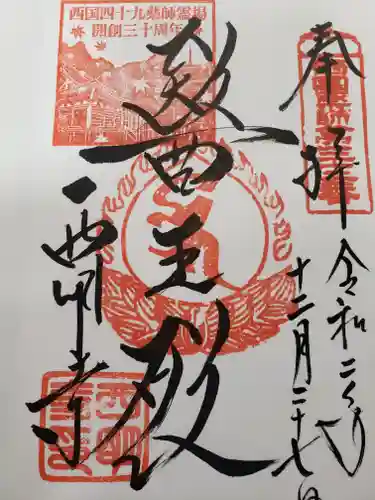 奉拝
令和二年
十二月二十七日
醫王殿
西明寺
西国四十九薬師霊場
開創三十周年